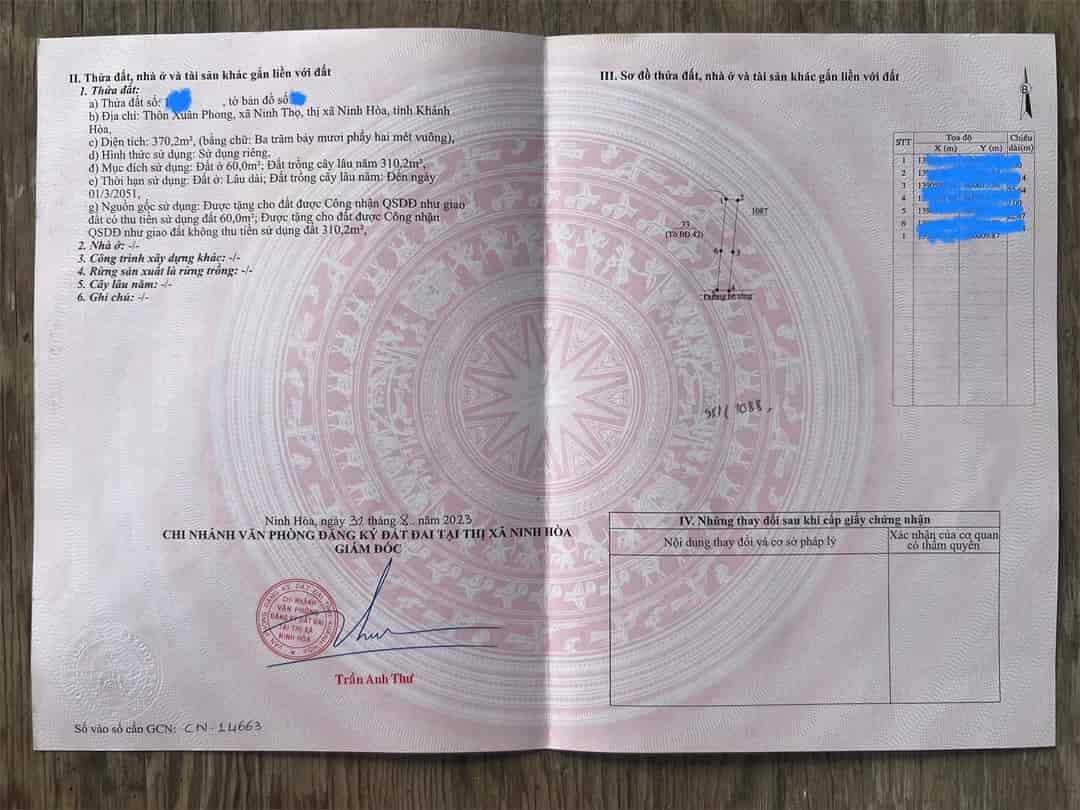 II. Thửa đất, nhà ở và tài sản khác gắn liền với đất
1. Thửa đất:
a) Thửa đất số: , tờ bản đồ số
b) Địa chỉ: Thôn Xuân Phong, xã Ninh Thọ, thị xã Ninh Hòa, tỉnh Khánh
Hòa,
c) Diện tích: 370,2m², (bằng chữ: Ba trăm bảy mươi phẩy hai mét vuông),
d) Hình thức sử dụng: Sử dụng riêng,
đ) Mục đích sử dụng: Đất ở 60,0m²; Đất trồng cây lâu năm 310,2m²,
e) Thời hạn sử dụng: Đất ở: Lâu dài; Đất trồng cây lâu năm: Đến ngày
01/3/2051,
g) Nguồn gốc sử dụng: Được tặng cho đất được Công nhận QSDĐ như giao
đất có thu tiền sử dụng đất 60,0m²; Được tặng cho đất được Công nhận
QSDĐ như giao đất không thu tiền sử dụng đất 310,2m²,
2. Nhà ở: -/-
3. Công trình xây dựng khác: -/-
4. Rừng sản xuất là rừng trồng: -/-
5. Cây lâu năm: -/-
6. Ghi chú: -/-
Ninh Hòa, ngày 31 tháng 8 năm 2023
CHI NHÁNH VĂN PHÒNG ĐĂNG KÝ ĐẤT ĐAI TẠI THỊ XÃ NINH HÒA
GIÁM ĐỐC
CHI NHÁNH
VĂN PHÒNG
ĐĂNG KÝ ĐẤT ĐAI
TẠI THỊ XÃ
NINH HÒA
Trần Anh Thư
Số vào sổ cấp GCN: CN-14663
III. Sơ đồ thửa đất, nhà ở và tài sản khác gắn liền với đất
B
STT Tọa độ Chiều
X (m) Y (m) dài(m)
1
2
3
4
5
6
1
1 2
1087
33
(Tờ BĐ 42)
6 3
Đường bê tông
981/1088,
IV. Những thay đổi sau khi cấp giấy chứng nhận
Nội dung thay đổi và cơ sở pháp lý
Xác nhận của cơ quan
có thẩm quyền